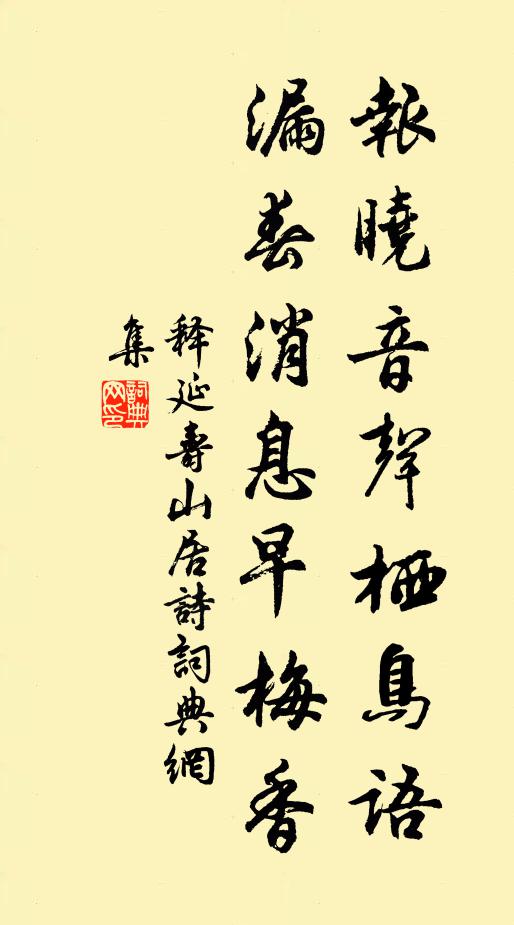 報曉音聲栖鳥語
漏春消息早梅香
释延壽山居詩詞典網
集
詞典網印